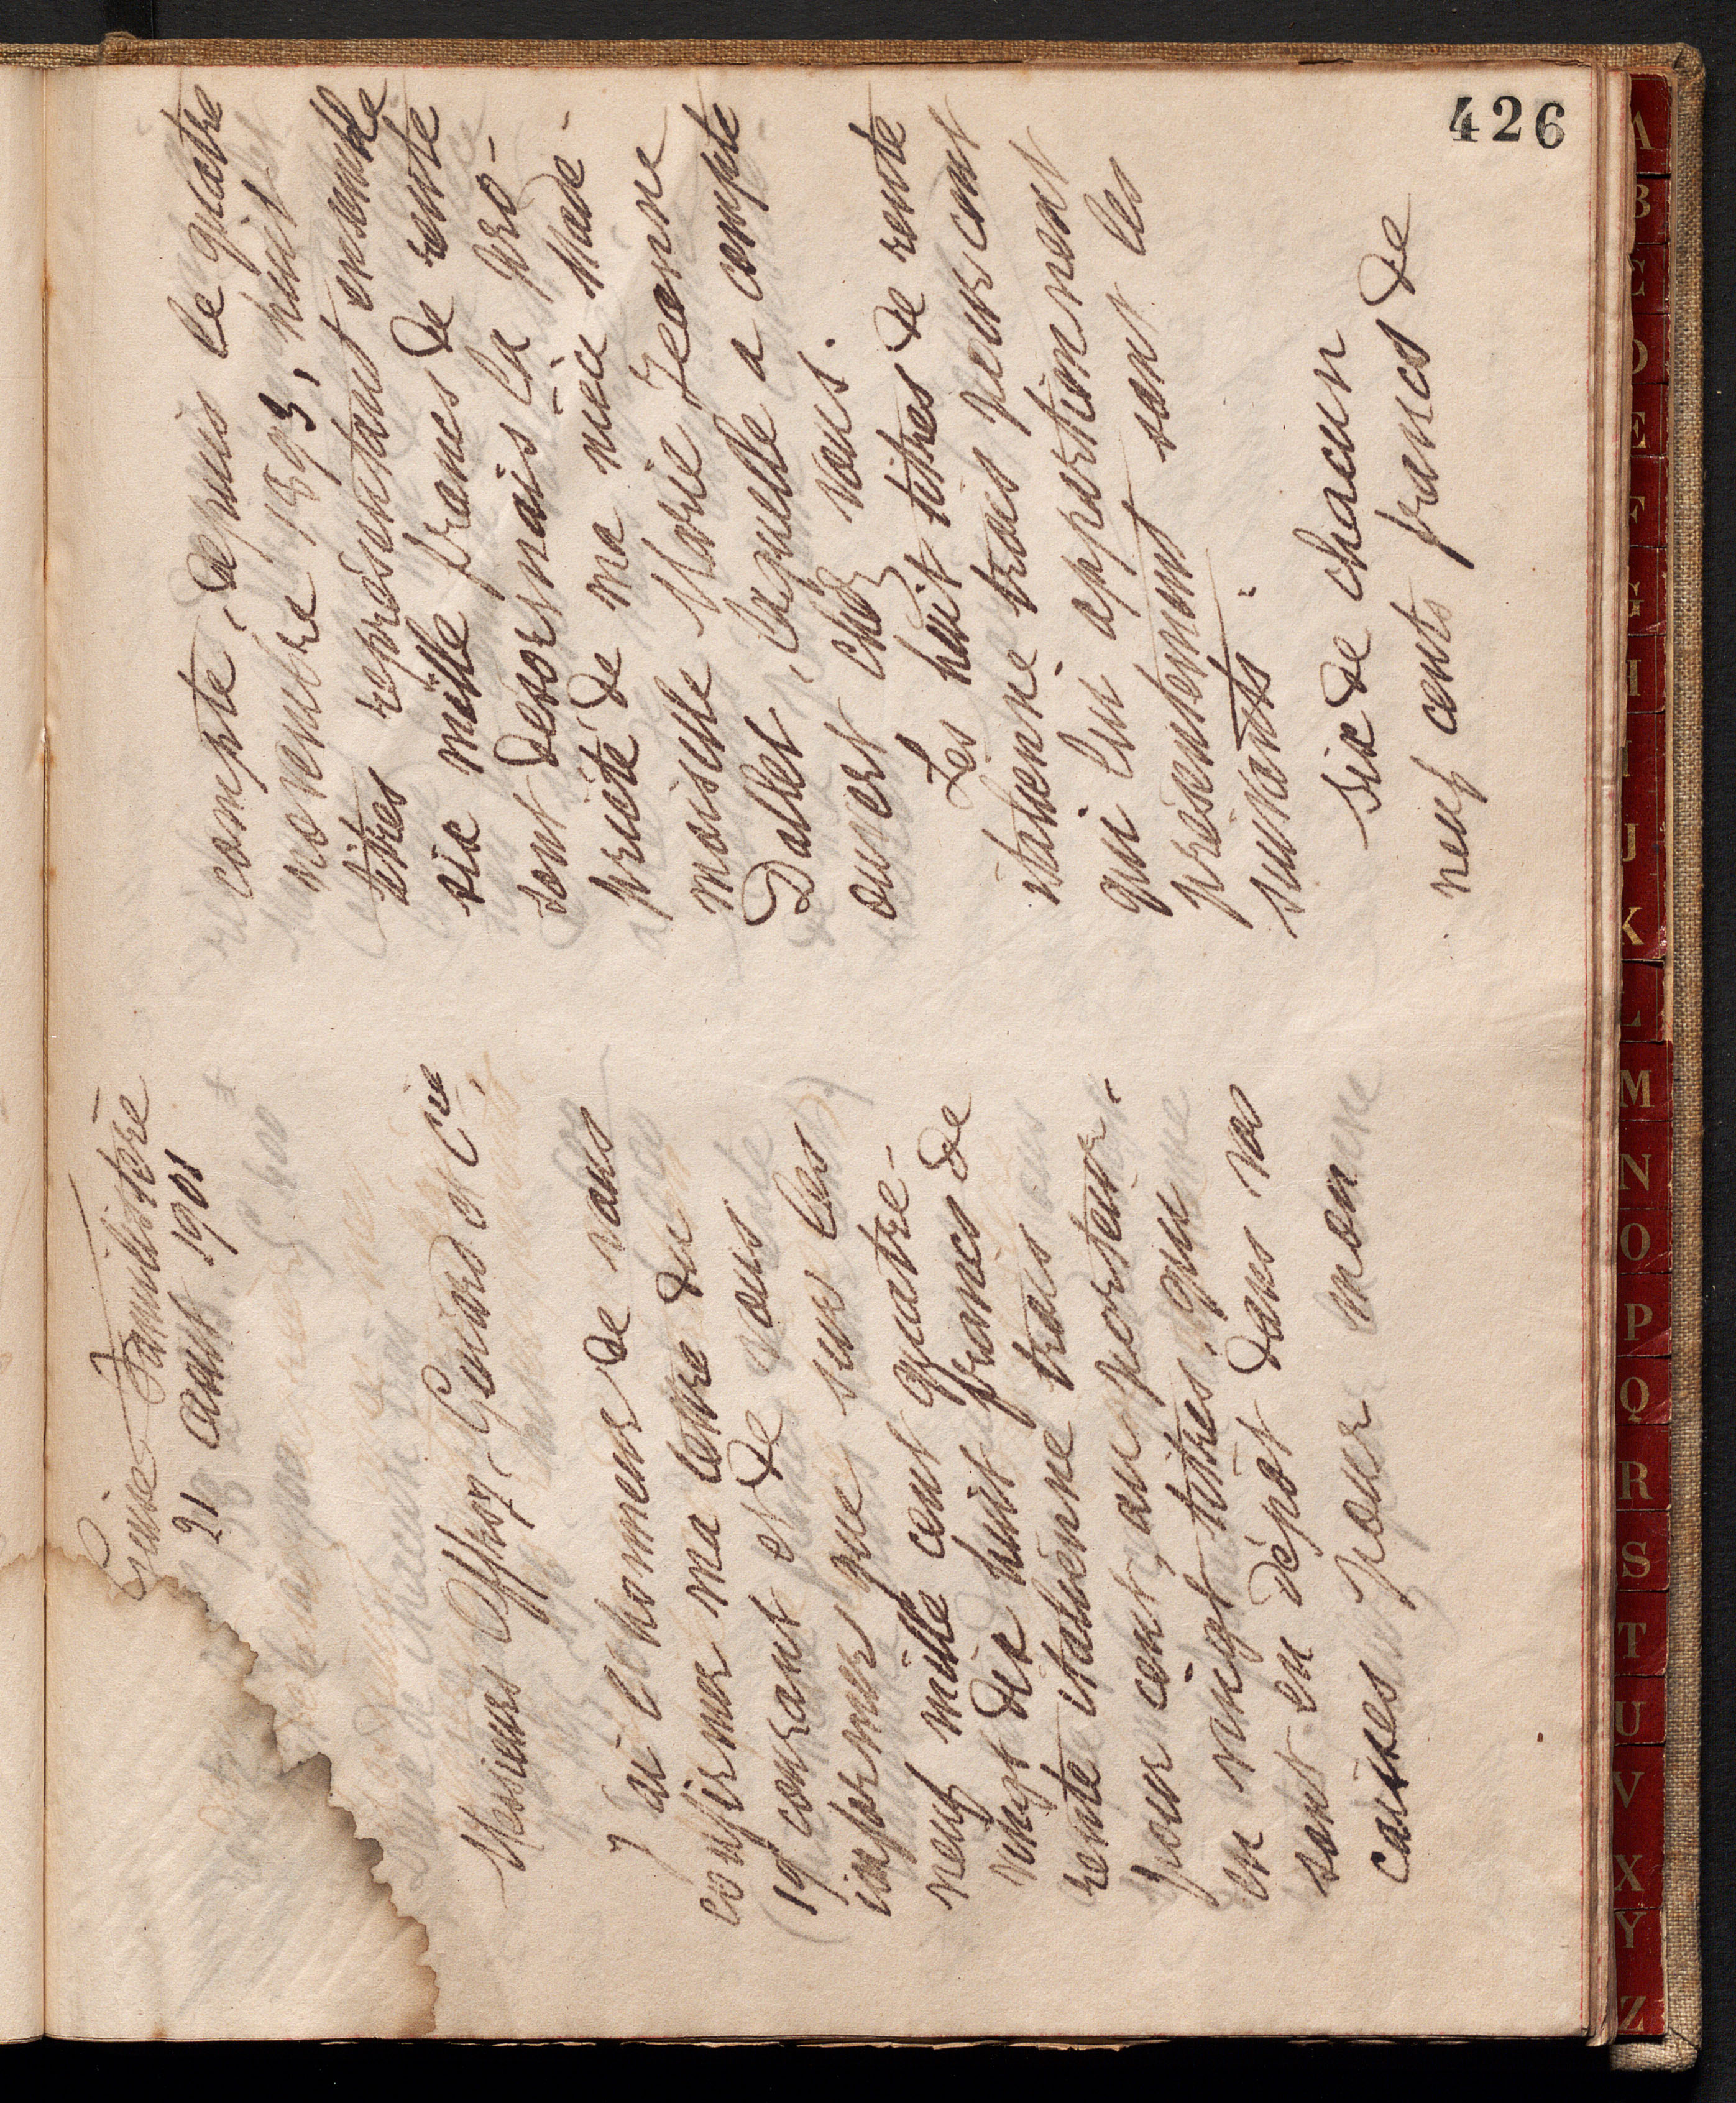 Guise Familistère
21 août 1901
Messieurs Offroy, Guiard et Cie,
J'ai l'honneur de vous
confirmer ma lettre du
19 courant et de vous
informer que sur les
neuf mille cent quatre-
vingt dix huit francs de
rente italienne trois
pour cent, au porteur,
en vingt titres, qui
sont en dépôt dans vos
caisses pour mon
compte, depuis le quatre
novembre 1893, huit
titres représentant ensemble
six mille francs de rente
sont désormais la pro-
priété de ma nièce Made-
moiselle Marie Jeanne
Dallet, laquelle a compte
ouvert chez vous.
Les huit titres de rente
italienne trois pour cent
qui lui appartiennent
présentement sont les
suivants :
Six de chacun
neuf cents francs de
426
A
B
D
E
F
G
J
K
M
N
O
P
Q
R
S
T
U
V
X
Y
Z